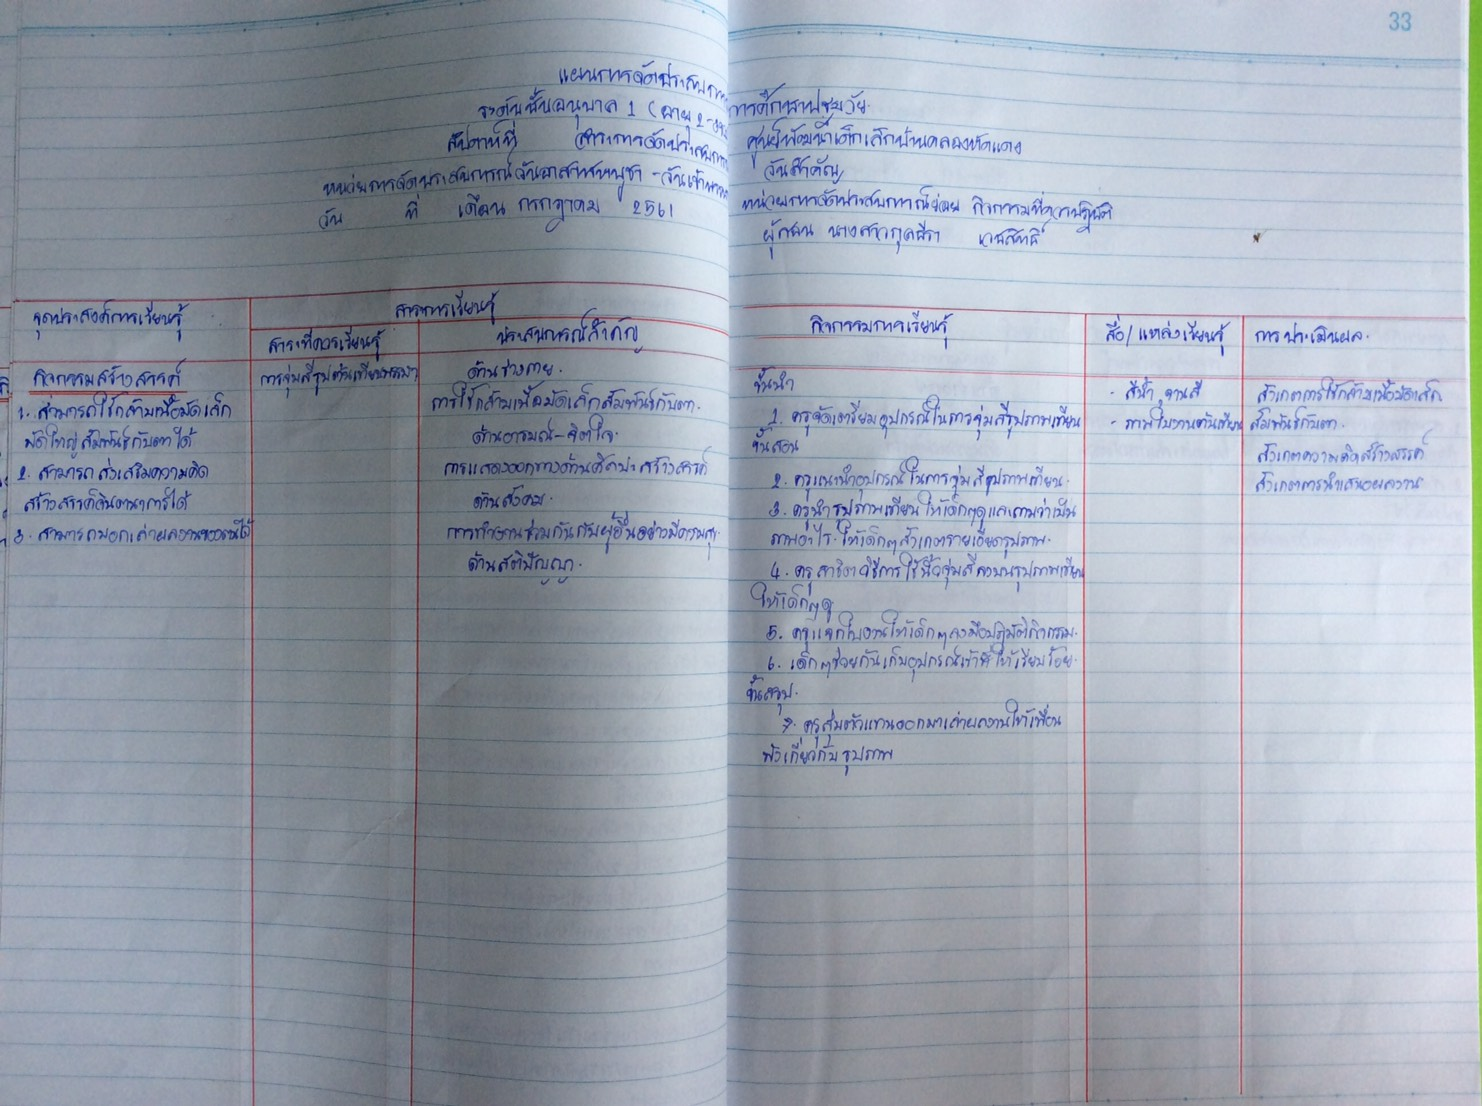 33
แผนการจัดประสบการณ์การศึกษาปฐมวัย
ระดับชั้นอนุบาล 1 (อายุ 2-3 ศูนย์พัฒนาเด็กเล็กบ้านคลองหัดแดง
สัปดาห์ที่ สาระการจัดประสบการณ์ วันสำคัญ
หน่วยการจัดประสบการณ์ วันอาสาฬหบูชา - วันเข้าพรรษา หน่วยการจัดประสบการณ์ย่อย กิจกรรมที่ควรปฏิบัติ
วัน ที่ เดือน กรกฎาคม 2561 ผู้สอน นางสาวกุลสิรา
จุดประสงค์การเรียนรู้
สาระการเรียนรู้
สาระที่ควรเรียนรู้
ประสบการณ์สำคัญ
กิจกรรมการเรียนรู้
สื่อ/แหล่งเรียนรู้
การประเมินผล
กิจกรรมสร้างสรรค์
1. สามารถใช้กล้ามเนื้อมัดเล็ก
มัดใหญ่สัมพันธ์กับตาได้
2. สามารถส่งเสริมความคิด
สร้างสรรค์จินตนาการได้
3. สามารถบอกเล่าผลงานของตนได้
การจุ่มสีรูปต้นเทียนพรรษา
ด้านร่างกาย.
การใช้กล้ามเนื้อมัดเล็กสัมพันธ์กับตา.
ด้านอารมณ์-จิตใจ.
การแสดงออกทางด้านศิลปะสร้างสรรค์
ด้านสังคม.
การทำงานร่วมกันกับผู้อื่นอย่างมีความสุข
ด้านสติปัญญา.
ขั้นนำ
1. ครูจัดเตรียมอุปกรณ์ในการจุ่มสีรูปภาพเทียน
ขั้นสอน
2. ครูแนะนำอุปกรณ์ในการจุ่มสีรูปภาพเทียน.
3. ครูนำรูปภาพเทียนให้เด็กๆดูและถามว่าเป็น
ภาพอะไร. ให้เด็กๆสังเกตรายเอียดรูปภาพ.
4. ครูสาธิตวิธีการใช้นิ้วจุ่มสีลงบนรูปภาพเทียน
ให้เด็กๆดู
5. ครูแจกใบงานให้เด็กๆลงมือปฏิบัติกิจกรรม.
6. เด็กๆช่วยกันเก็บอุปกรณ์เข้าที่ให้เรียบร้อย.
ขั้นสรุป.
7. ครูสุ่มตัวแทนออกมาเล่าผลงานให้เพื่อน
ฟังเกี่ยวกับรูปภาพ
- สีน้ำ, จานสี
- ภาพใบงานต้นเทียน
สังเกตการใช้กล้ามเนื้อมัดเล็ก
สัมพันธ์กับตา.
สังเกตความคิดสร้างสรรค์
สังเกตการนำเสนอผลงาน